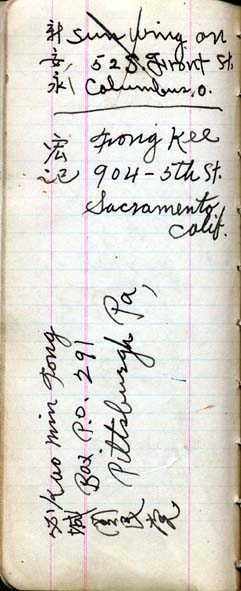 新 Sun Wing on
安 52 S. Front St.
永 Columbus, O.
宏 Fong Kee
記 904 - 5th St.
Sacramento,
Calif.
Kuo Min Tong
城 Box P.O. 291
Pittsburgh Pa,
國民黨